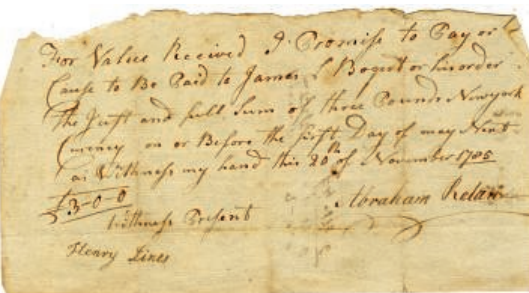 For Value Received I Promise to Pay or
Cause to Be Paid to James L Bogert or his order
The Just and full Sum of three Pounds Newyork
Currency on or Before the first Day of may Next
as Wittness my hand this 20th of November 1785
£3-0-0
Abraham
Wittness Present
Henry Lines